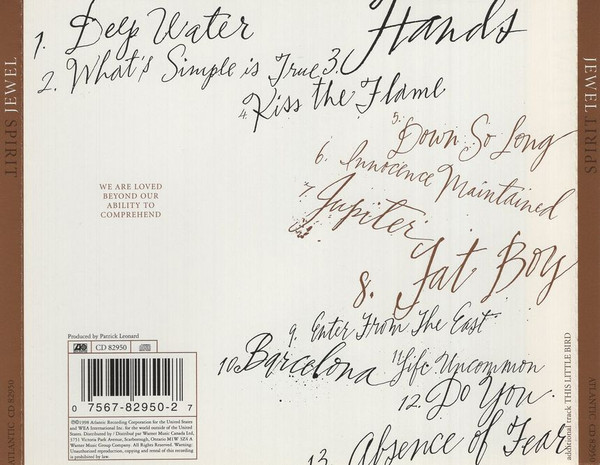 1. Deep Water
Hands
2. What's Simple is True 3.
4. Kiss the Flame
5. Down So Long
6. Innocence Maintained
7. Jupiter
8. Fat Boy
9. Enter From The East
10. Barcelona
11. Life Uncommon
12. Do You
13. Absence of Fear
WE ARE LOVED
BEYOND OUR
ABILITY TO
COMPREHEND
Produced by Patrick Leonard
CD 82950
0 7567-82950-2 7
℗©1998 Atlantic Recording Corporation for the United States
and WEA International Inc. for the world outside of the United
States. Distributed by / Distribué par Warner Music Canada Ltd,
3751 Victoria Park Avenue, Scarborough, Ontario M1W 3Z4 A
Warner Music Group Company. All Rights Reserved. Warning:
Unauthorized reproduction, copying and rental of this recording
is prohibited by law.
additional track THIS LITTLE BIRD
JEWEL SPIRIT
ATLANTIC CD 82950
JEWEL SPIRIT
ATLANTIC CD 82950